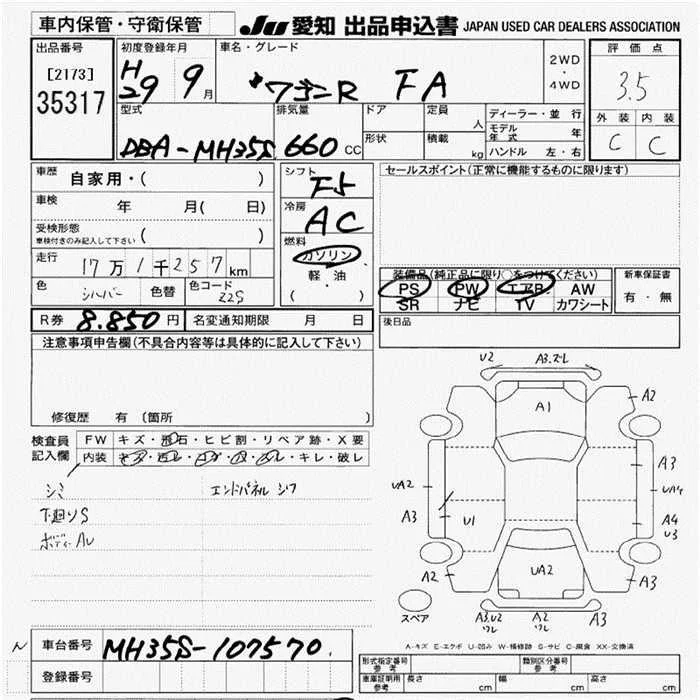 車内保管・守衛保管 JU 愛知 出品申込書 JAPAN USED CAR DEALERS ASSOCIATION
出品番号 初度登録年月 車名・グレード 評価点
[2173] H29 9月 ワゴンR FA 2WD・4WD 3.5
35317
型式 排気量 ドア 定員 人 ディーラー・並行 外装 内装
DBA-MH35S 660 CC 形状 積載 kg モデル年式 年 C C
ハンドル 左・右
車歴 自家用・( ) シフト F5 セールスポイント(正常に機能するものに限ります)
車検 年 月( 日) 冷房 AC
受検形態 車検付きのみ記入して下さい ( ) 燃料 ガソリン
走行 17万1千257km 軽・油
色 シルバー 色替 色コード Z2S ( )
装備品(純正品に限り○をつけてください) 新車保証書
PS PW エアB AW 有・無
SR ナビ TV カワシート
R券 8.850円 名変通知期限 月 日 後日品
注意事項申告欄(不具合内容等は具体的に記入して下さい)
修復歴 有 (箇所
検査員記入欄 FW キズ・飛石・ヒビ割・リペア跡・X要
内装 キズ・汚レ・コゲ・穴・ヌレ・キレ・破レ
シミ エンドパネル シワ
下廻りS
ボディーAU
U2 A3.ズレ
A1 A2
A3
UA2 UA4
A3 U1 A4
U3
A2 UA2 A3
スペア A3.U2 ワレ A2 ワレ A3
A-キズ E-エクボ U-凹み W-補修跡 S-サビ C-腐食 XX-交換済
N 車台番号 MH35S-107570
登録番号
型式指定番号 参考 類別区分番号 参考
車庫証明用 参考 長さ cm 幅 cm 高さ cm